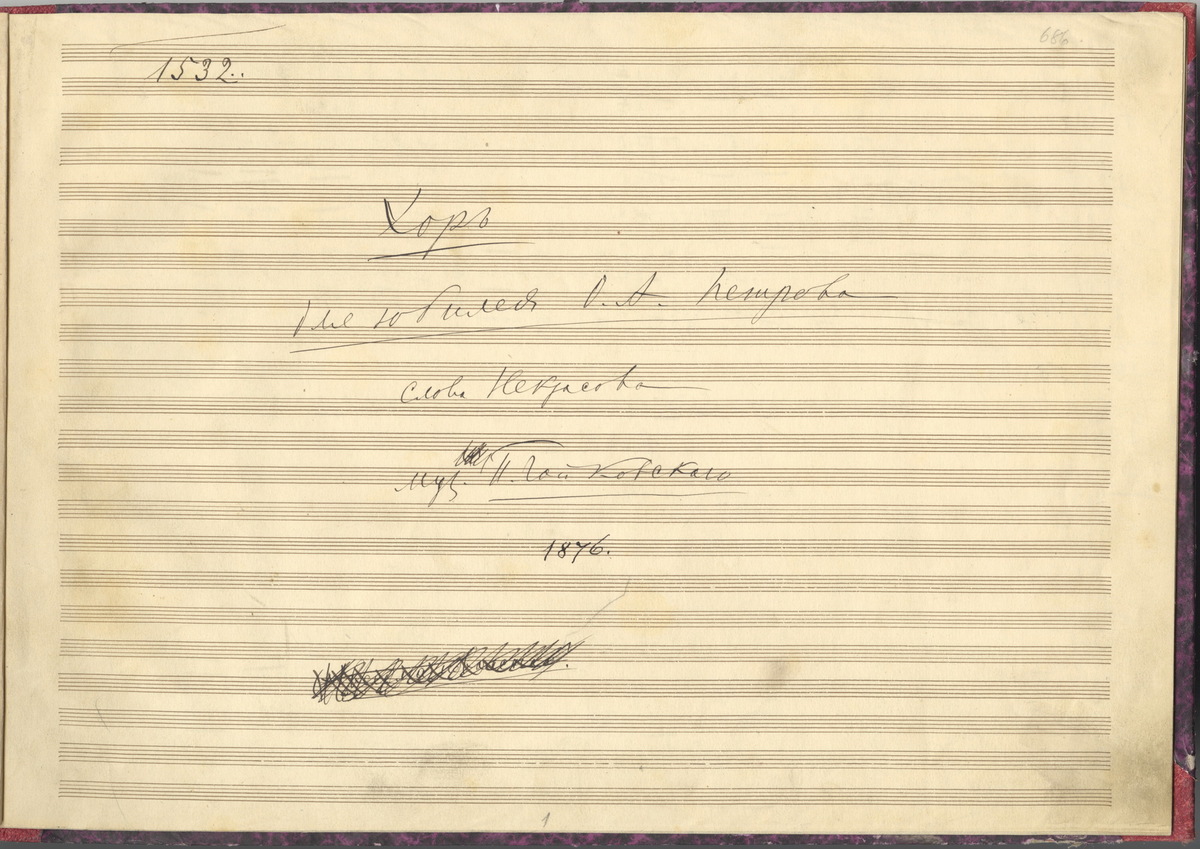 686.
1532..
Хоръ
для юбилея О. А. Петрова
слова Некрасова
муз. П. Чайковскаго
1876.
1